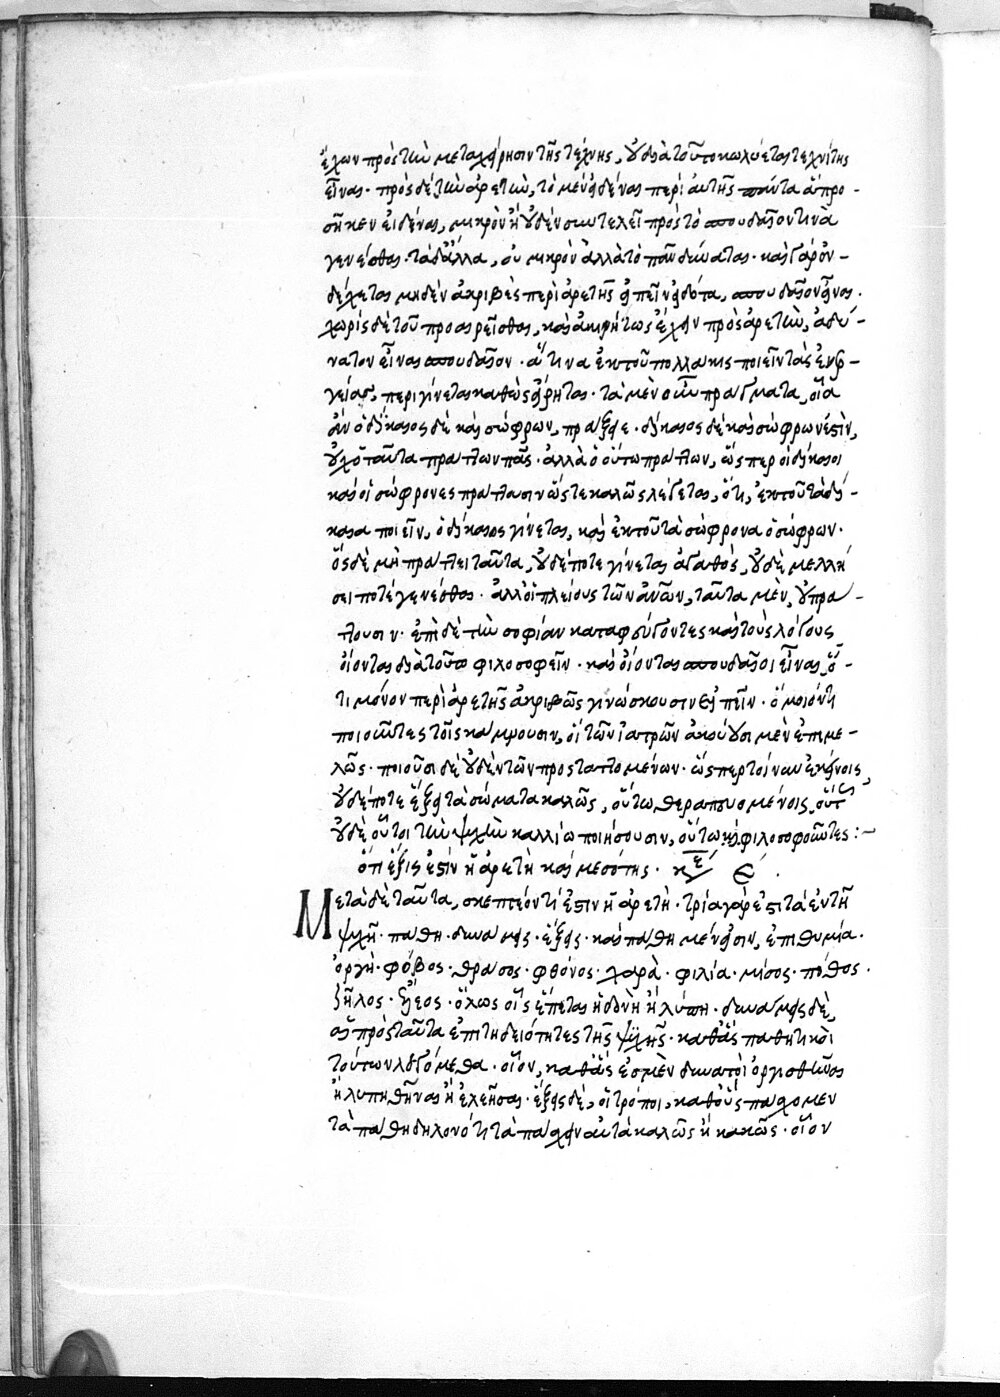 ἔχων πρὸς τὴν μεταχείρησιν τῆς τέχνης, οὐ διὰ τοῦτο κωλύεται τεχνίτης
εἶναι· πρὸς δὲ τὴν ἀρετὴν, τὸ μὲν εἰδέναι περὶ αὐτῆς πάντα ἃ προ-
σῆκεν εἰδέναι, μικρὸν ἢ οὐδὲν συντελεῖ πρὸς τὸ σπουδαῖον τινὰ
γενέσθαι· τὰ δ' ἄλλα, οὐ μικρὸν ἀλλὰ τὸ πᾶν δύναται· καὶ γὰρ ἐν-
δέχεται μηδὲν ἀκριβὲς περὶ ἀρετῆς εἰπεῖν εἰδότα, σπουδαῖον εἶναι.
χωρὶς δὲ τοῦ προαιρεῖσθαι, καὶ ἀκινήτως ἔχειν πρὸς ἀρετὴν, ἀδύ-
νατον εἶναι σπουδαῖον· ἅτινα ἐκ τοῦ πολλακις ποιεῖν τὰς ἐνερ-
γείας, περιγίνεται καθὼς εἴρηται· τὰ μὲν οὖν πράγματα, οἷα
ἂν ὁ δίκαιος δὲ καὶ σώφρων, πράξειε· δίκαιος δὲ καὶ σώφρων ἐστὶν,
οὐχ ὁ ταῦτα πράττων πᾶς· ἀλλὰ ὁ οὕτω πράττων, ὥσπερ οἱ δίκαιοι
καὶ οἱ σώφρονες πράττουσιν ὥστε καλῶς λέγεται, ὅτι, ἐκ τοῦ τὰ δί-
καια ποιεῖν, ὁ δίκαιος γίνεται, καὶ ἐκ τοῦ τὰ σώφρονα ὁ σώφρων·
ὃς δὲ μὴ πράττει ταῦτα, οὐδέποτε γίνεται ἀγαθὸς, οὐδὲ μελλή
σει ποτὲ γενέσθαι· ἀλλ' οἱ πλείους τῶν ἀνῶν, ταῦτα μὲν, οὐ πρα-
ττουσιν· ἐπὶ δὲ τὴν σοφίαν καταφεύγοντες καὶ τοὺς λόγους
οἴονται διὰ τοῦτο φιλοσοφεῖν· καὶ οἴονται σπουδαῖοι εἶναι, ὅ-
τι μόνον περὶ ἀρετῆς ἀκριβῶς γινώσκουσιν εἰπεῖν· ὅμοιόν τι
ποιοῦντες τοῖς κάμνουσιν, οἳ τῶν ἰατρῶν ἀκούουσι μὲν ἐπιμε-
λῶς· ποιοῦσι δὲ οὐδὲν τῶν προσταττομένων· ὥσπερ τοίνυν ἐκεῖνοις,
οὐδέποτε ἕξει τὰ σώματα καλῶς, οὕτω θεραπευομένοις, οὕτ
οὐδὲ οὗτοι τὴν ψυχὴν καλλίω ποιήσουσιν, οὕτω φιλοσοφοῦντες :~
ὅτι ἕξις ἐστὶν ἡ ἀρετὴ καὶ μεσότης. κε ε.
Μετὰ δὲ ταῦτα, σκεπτέον τί ἐστιν ἡ ἀρετὴ· τρία γάρ ἐστι τὰ ἐν τῆ
ψυχῆ· πάθη· δυνάμεις· ἕξεις· καὶ πάθη μέν εἰσιν, ἐπιθυμία.
ὀργὴ· φόβος· θράσος· φθόνος· χαρὰ· φιλία· μίσος· πόθος.
ζῆλος· ἔλεος· ὅλως οἷς ἕπεται ἡδονὴ ἢ λύπη· δυνάμεις δὲ,
αἱ πρὸς ταῦτα ἐπιτηδειότητες τῆς ψυχῆς· καθ' ἃς παθητικοὶ
τούτων λεγόμεθα· οἷον, καθ' ἃς ἐσμὲν δυνατοὶ ὀργισθῆναι
ἢ λυπηθῆναι ἢ ἐλεῆσαι· ἕξεις δὲ, οἱ τρόποι, καθ' οὓς πάσχομεν
τὰ πάθη δηλονότι τὰ πάσχειν αὐτὰ καλῶς ἢ κακῶς· οἷον